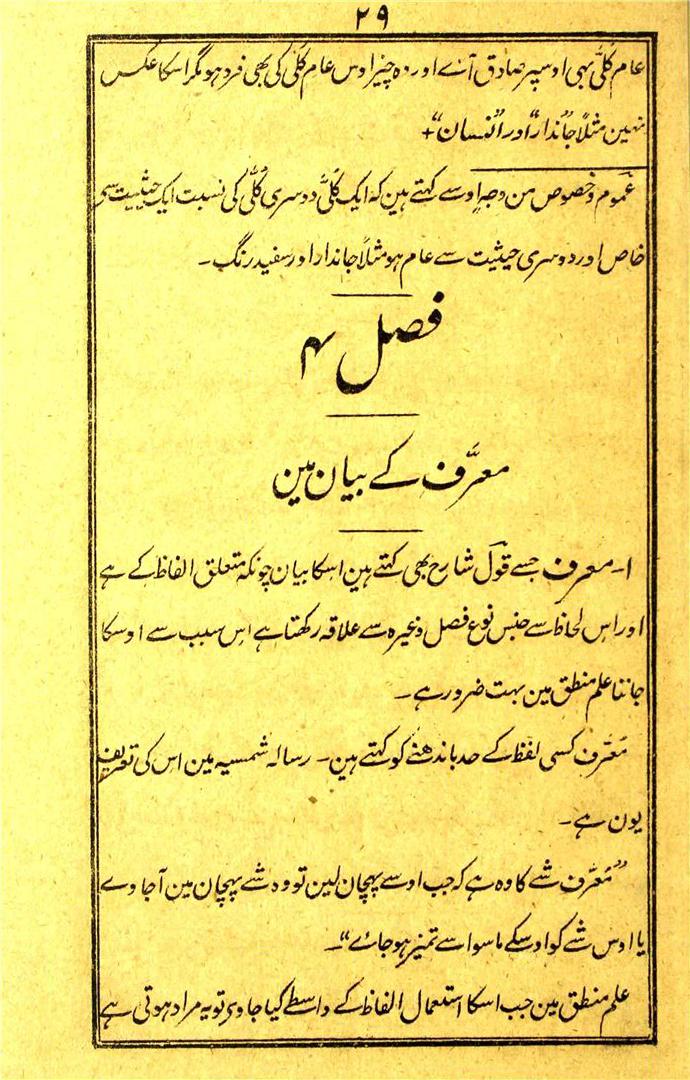 ۲۹
عام کلّی بہی اوسپر صادق آئے اور وہ چیز اوس عام کلی کی بھی فرد ہو مگر اسکا عکس
نہین مثلاً ”جاندار“ اور ”انسان“ +
عموم و خصوص من وجہٍ اوسے کہتے ہین کہ ایک کلّی دوسری کلّی کی نسبت ایک حیثیت سے
خاص اور دوسری حیثیت سے عام ہو مثلاً جاندار اور سفید رنگ۔
فصل ۴
معرَّف کے بیان مین
۱۔ معرف جسے قول شارح بھی کہتے ہین اسکا بیان چونکہ متعلق الفاظ کے ہے
اور اس لحاظ سے جنس نوع فصل وغیرہ سے علاقہ رکھتا ہے اس سبب سے اوسکا
جاننا علم منطق مین بہت ضرور ہے۔
مَعَرّف کسی لفظ کے حد باندھنے کو کہتے ہین۔ رسالہ شمسیہ مین اس کی تعریف
یون ہے۔
”مَعَرّف شے کا وہ ہے کہ جب اوسے پہچان لین تو وہ شے پہچان مین آجاوے
یا اوس شے کو اوسکے ماسوا سے تمیز ہو جائے“۔
علم منطق مین جب اسکا استعمال الفاظ کے واسطے کیا جاوی تو یہ مراد ہوتی ہے